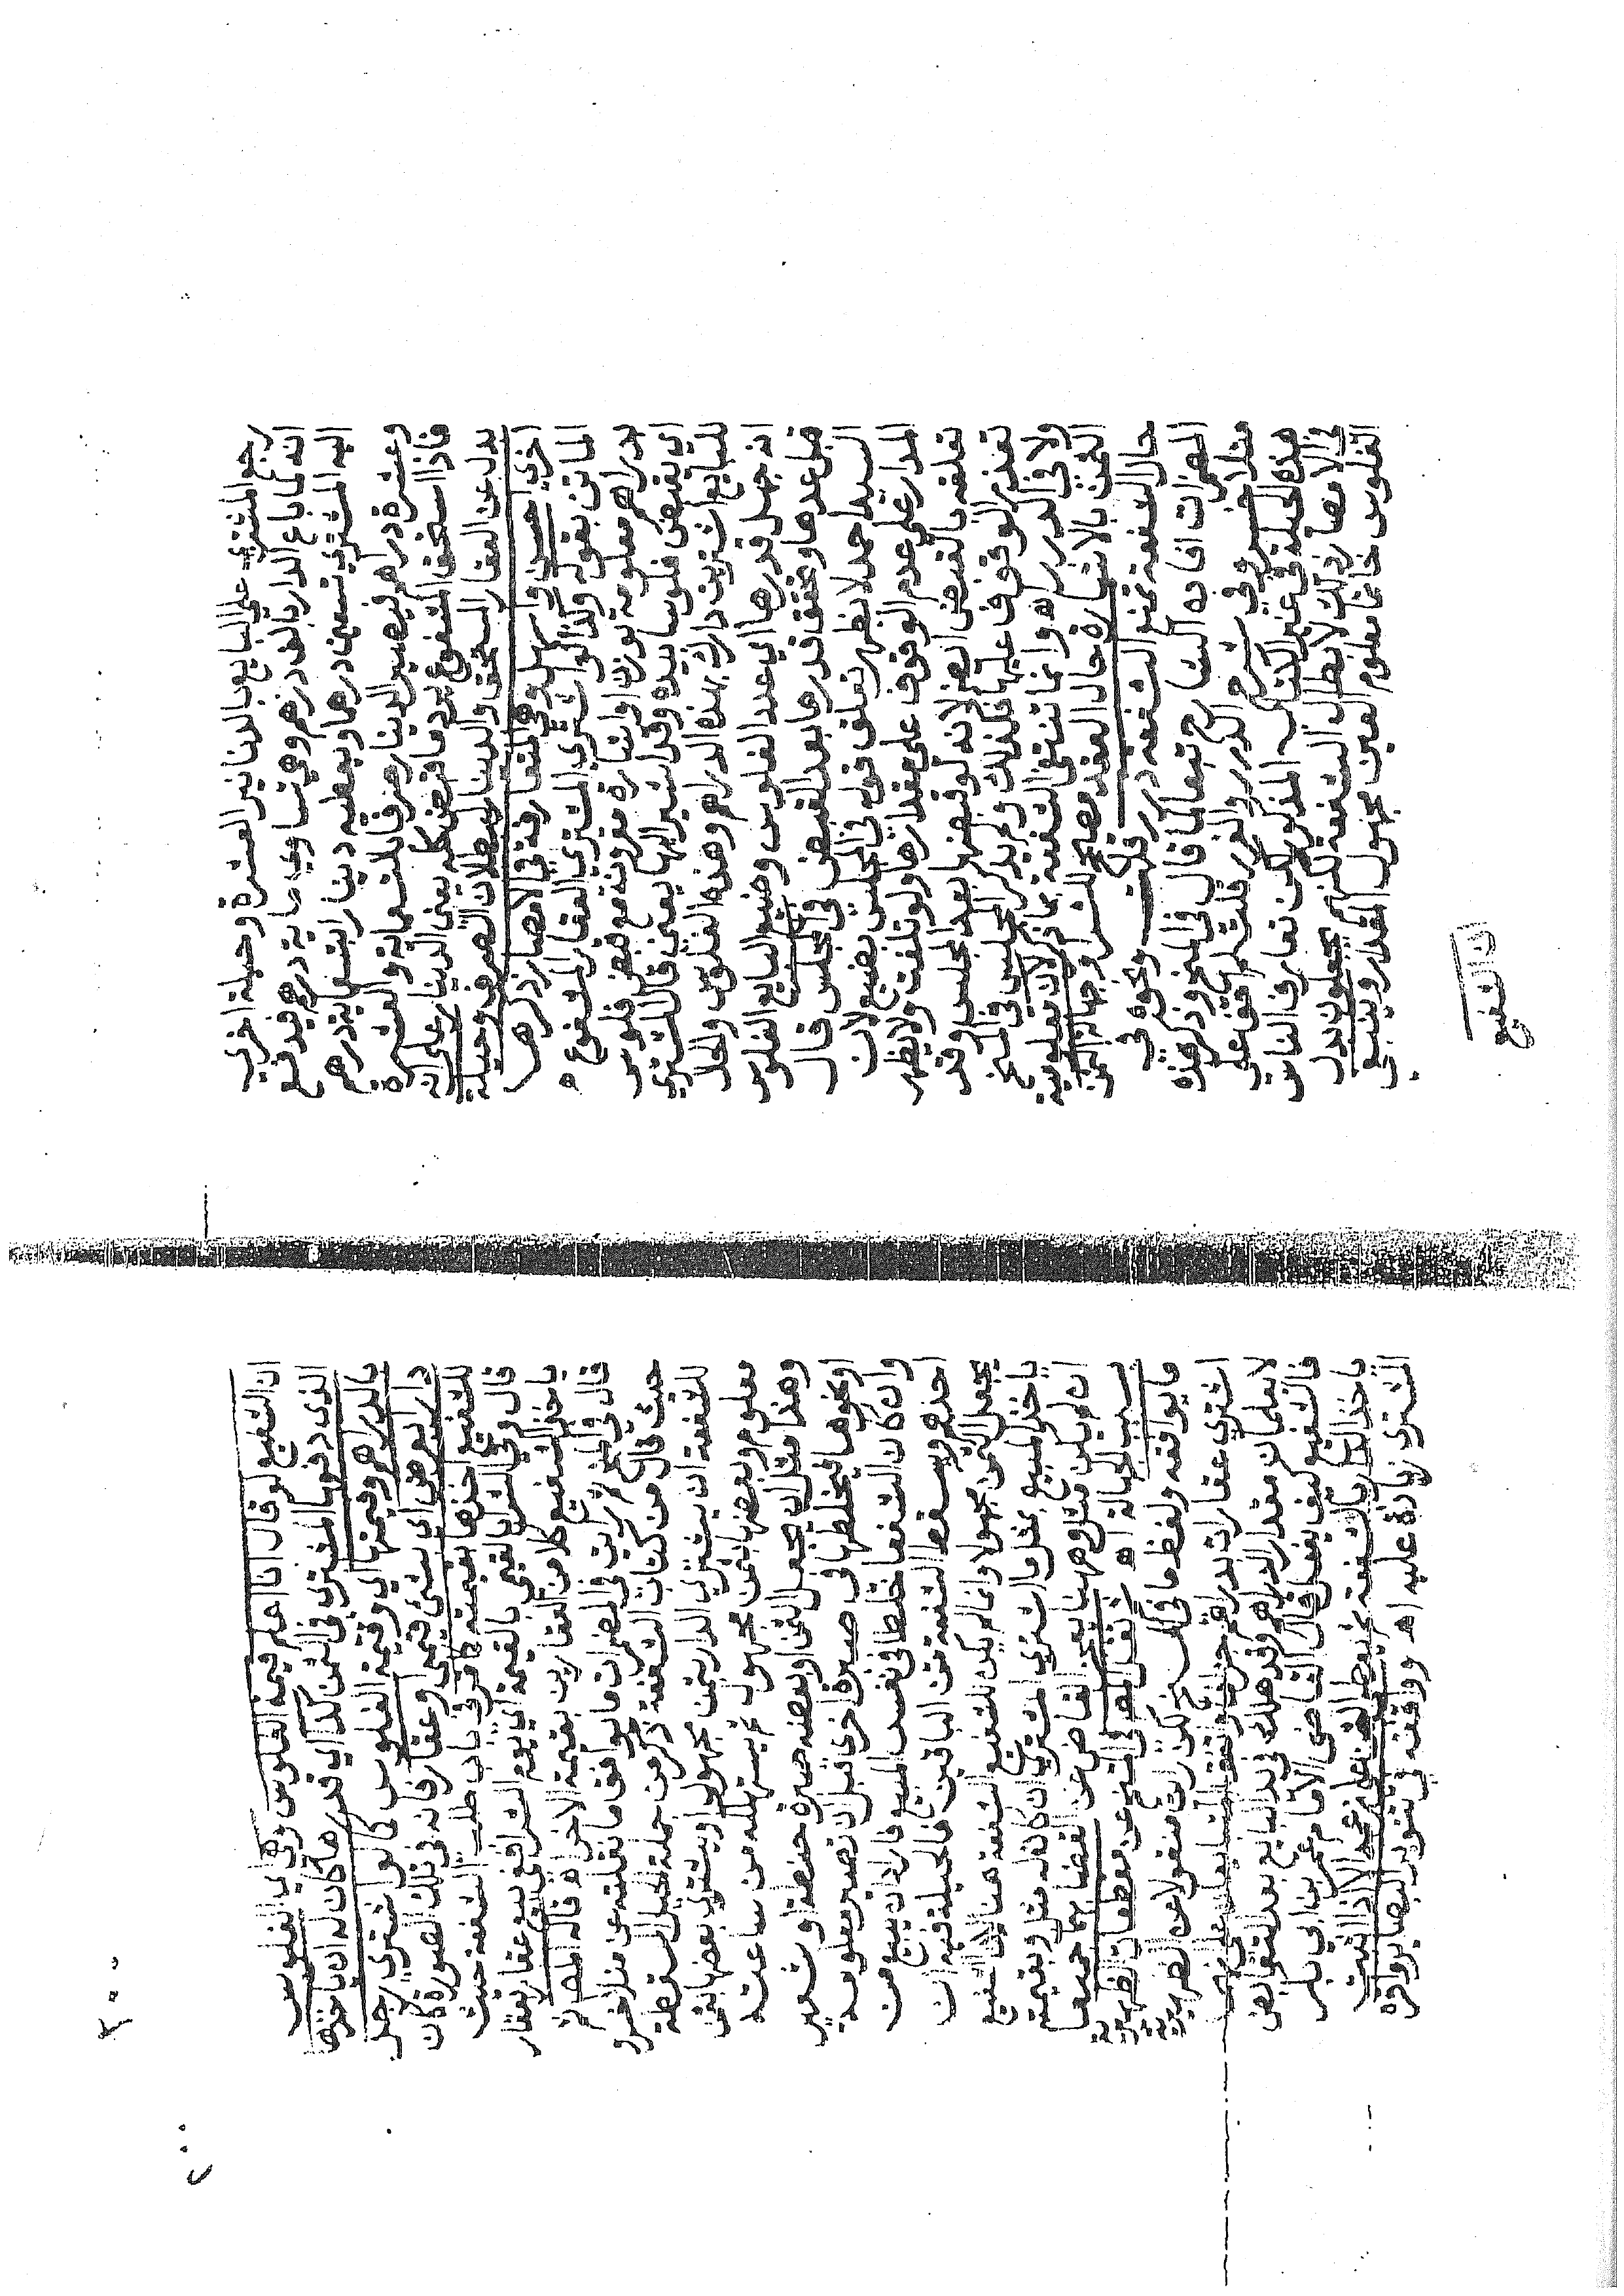 رجع المشتري على البايع بالدنانير العشرة وحيلة اخرى
انه لما باع الدار بالف درهم وهي تساوي ماية درهم فيدفع
اليه المشتري تسعين درهما ويعطيه دينارا بتسعماية درهم
وعشرة دراهم فيصير الدينار صرفا بتسعماية والعشرة
فاذا استحق المشفوع يرد ما قبض كله يعني الدينار على انه
بدل عن العقار المستحق والدينار لبطلان الصرف وحيلة
اخرى احسن واسهل وهي المتعارفة في الامصار ذكرها
الماتن بقوله وكذا لو اشترى المشتري العقار المشفوع ه
بدراهم معلومة بوزن او اشارة مقرونة مع قبض فلوس
اي بقبض فلوس بيده وقد اشير اليها يعني قال للمشتري
للبايع اشتريت دارك بهذه الدراهم وهذه الفلوس والحال
انه جهل قدرها اي عدد الفلوس وضيع البايع الفلوس
قبل عدها وتحقق قدرها بعد القبض في المجلس قال
السيد احمد لا يظهر تعلق قوله في المجلس بضيع لان
المدار على عدم الوقوف على مقدارها ولو تلفت ولا يظهر
تعلقه بالقبض ايضا لانه لو قبضها بعد المجلس وقد
تعذر الوقوف عليها فكذلك ولم يذكر المجلس في المنح
ولا في الدرر اه وانما تنتفي الشفعة بما ذكر لان معلومية
الثمن بالاشارة حال العقد مصحح للشرا وجهالة الثمن
حال الشفعة تمنع الشفعة درر قلت ونحوه في
المضمرات افاده الشارح تبعا لما قال في المنح وذكر هذه
منلا خسرو في شرح الدرر والغرر قلت لم اقف على
هذه الحيلة في غير الكتاب المذكور لكن تعارف الناس
في الامصار ذلك لابطال الشفعة لكنهم يجعلون بدل
الفلوس خاتما معلوم العين مجهول المقدار وينبغي
ان الشفيع
ان الشفيع لو قال انا اعلم قيمة الفلوس وهي اي الفلوس
الذي دفعها المشتري في الثمن كذا اي قدرها كان له ان ياخذها
بالدراهم وقيمتها اي وقيمة الفلوس كما لو اشترى رجل
دارا بعرض اي بشئ قيمي وعقار فانه في تلك الصورة كان
للشفيع اخذها بقيمته كما مر في باب طلب الشفعة حيث
قال وفي الشرا بقيمي بالقيمة اي يوم الشرا ففي بيع عقار بعقار
ياخذ الشفيع كلا من العقارين بقيمة الاخر اه قاله المص
قال في المنح ثم رايت في المضمرات ما يوافق ما نقلته عن منلا خسرو
حيث قال من كتاب الشفعة ذكر من جملة الحيل المسقطة
للشفعة ان يشتري الدار بثمن مجهول او يشتري بعضها بثمن
معلوم وبعضها بثمن مجهول ثم يستهلكه من ساعته
وهذا مثل ان يجعل الثمن او بعضه صبرة حنطة او شعير
او نحوها فيخلطها في صبرة اخرى قبل ان تصير معلومة
وان كان الشفعا خلطا في نفس المبيع فاراد ان يبيع من
احدهم ويسقط الشفعة من الباقين فالحيلة فيه ان
يجعل الثمن مجهولا وانما لم يكن للشفيع الشفعة هنا لان الشفيع
ياخذ المبيع بمثل ما اشترى المشتري ان كان له مثل وبقيمته
ان لم يكن مثل وههنا يعجز القاضي عن القضا بهما جميعا
بسبب الجهالة اه ونقل المص في المنح عن مقطعات الظهيرية
ما يوافقه ولفظ ما في لكن رايت منقولا عن الظهيرية
اشترى عقارا بدراهم جزافا واتفق المتبايعان على انهما
لا يعلمان مقدار الدراهم وقد هلك في يد البايع بعد التقابض
فالشفيع كيف يفعل قال القاضي الامام عمر بن ابي بكر
ياخذ الدار بالشفعة ثم يعطي الثمن على زعمه الا اذا اثبت
المشتري زيادة عليه اه ووافقه في تنوير البصاير واقره